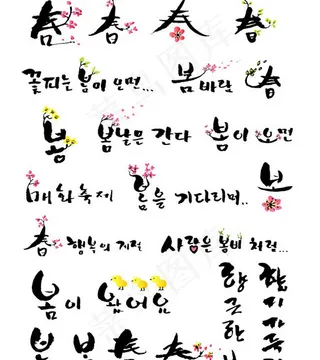 春 春 春 春
꽃피는 봄이 오면... 봄바람 春
봄 봄날은 간다 봄이 오면
매화축제 봄을 기다리며.. 봄
春 행복의 계절 사랑은 봄비처럼...
봄이 왔어요
향긋한
봄 봄 春 春